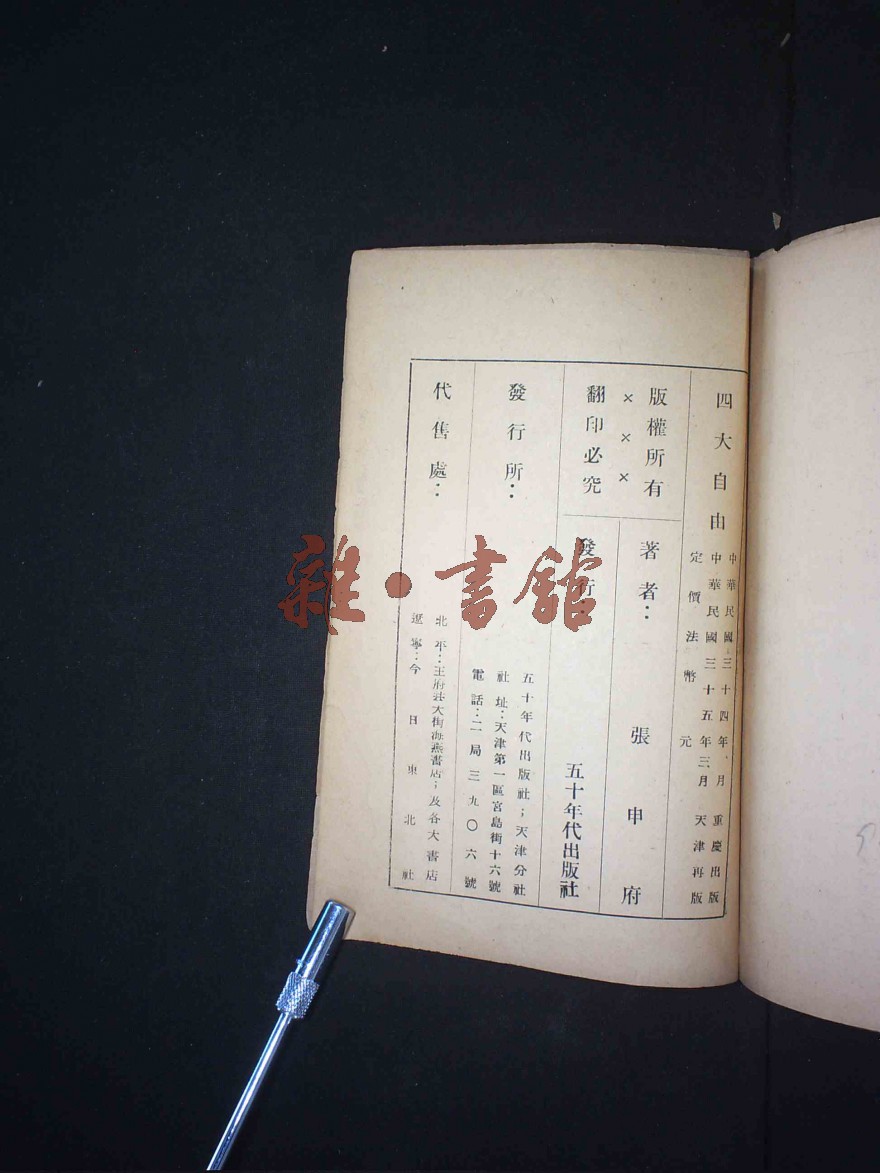 四大自由
中華民國三十四年 月 重慶出版
中華民國三十五年三月 天津再版
定價法幣 元
版權所有
×××
翻印必究
著者：張申府
發行：五十年代出版社
發行所：
五十年代出版社；天津分社
社址：天津第一區宮島街十六號
電話：二局三九〇六號
代售處：
北平：王府井大街海燕書店；及各大書店
遼寧：今日東北社
雜·書館